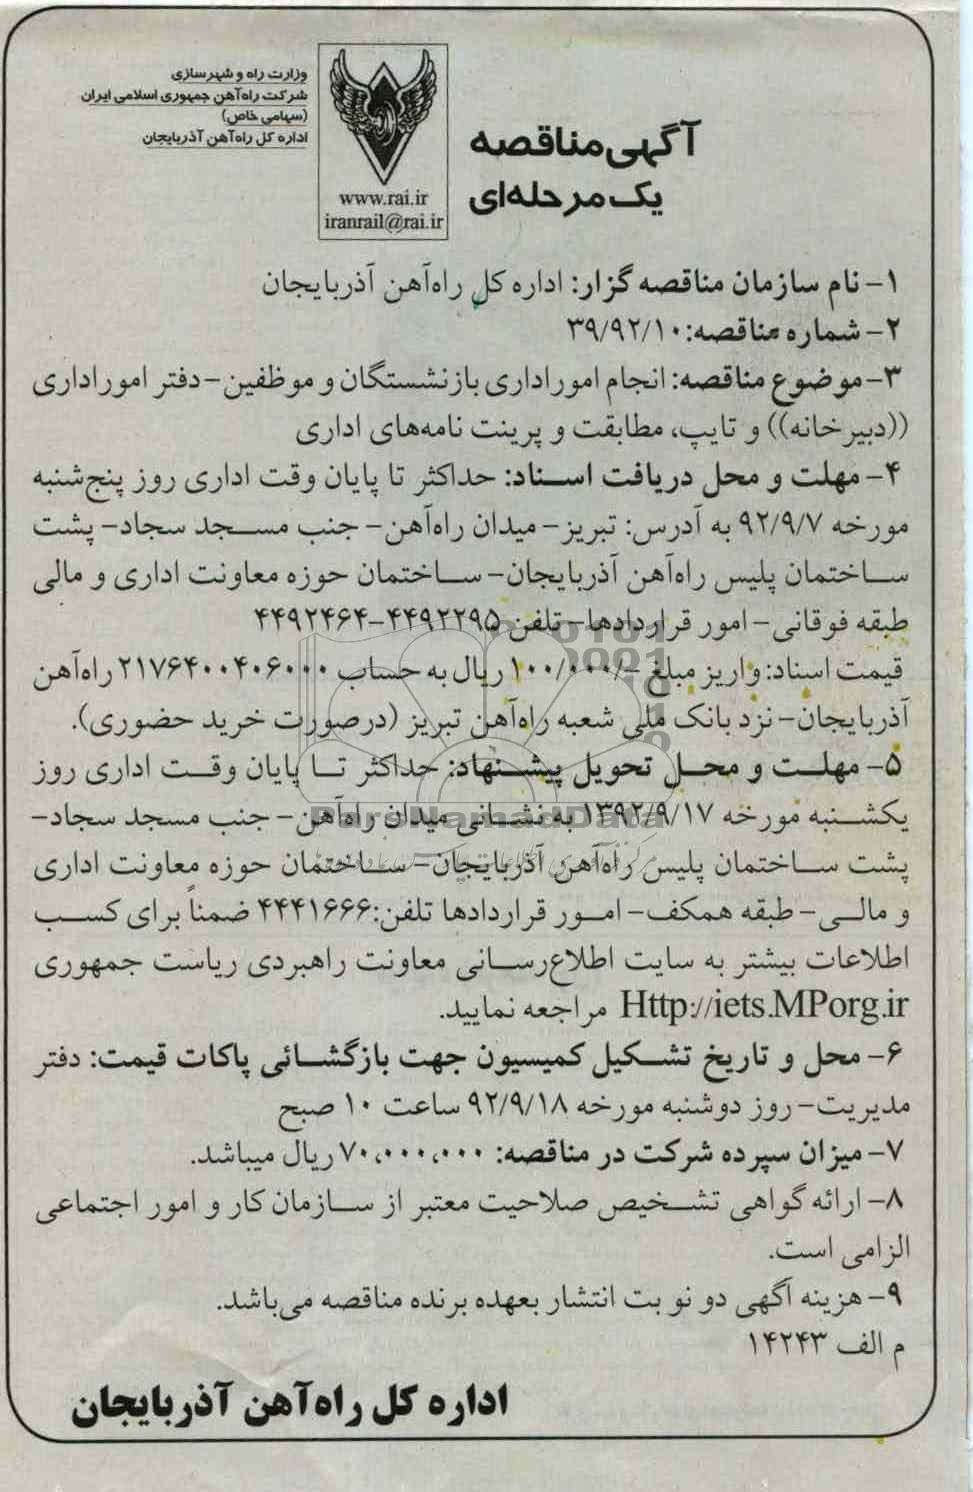 وزارت راه و شهرسازی
شرکت راه‌آهن جمهوری اسلامی ایران
(سهامی خاص)
اداره کل راه‌آهن آذربایجان
www.rai.ir
iranrail@rai.ir
آگهی مناقصه
یک مرحله‌ای
۱- نام سازمان مناقصه گزار: اداره کل راه‌آهن آذربایجان
۲- شماره مناقصه: ۳۹/۹۲/۱۰
۳- موضوع مناقصه: انجام امور اداری بازنشستگان و موظفین- دفتر امور اداری
((دبیرخانه)) و تایپ، مطابقت و پرینت نامه‌های اداری
۴- مهلت و محل دریافت اسناد: حداکثر تا پایان وقت اداری روز پنج‌شنبه
مورخه ۹۲/۹/۷ به آدرس: تبریز- میدان راه‌آهن- جنب مسجد سجاد- پشت
ساختمان پلیس راه‌آهن آذربایجان- ساختمان حوزه معاونت اداری و مالی
طبقه فوقانی- امور قراردادها- تلفن ۴۴۹۲۲۹۵-۴۴۹۲۴۶۴
قیمت اسناد: واریز مبلغ -/۱۰۰/۰۰۰ ریال به حساب ۲۱۷۶۴۰۰۴۰۶۰۰۰ راه‌آهن
آذربایجان- نزد بانک ملی شعبه راه‌آهن تبریز (درصورت خرید حضوری).
۵- مهلت و محل تحویل پیشنهاد: حداکثر تا پایان وقت اداری روز
یکشنبه مورخه ۱۳۹۲/۹/۱۷ به نشانی میدان راه‌آهن- جنب مسجد سجاد-
پشت ساختمان پلیس راه‌آهن آذربایجان- ساختمان حوزه معاونت اداری
و مالی- طبقه همکف- امور قراردادها تلفن: ۴۴۴۱۶۶۶ ضمناً برای کسب
اطلاعات بیشتر به سایت اطلاع‌رسانی معاونت راهبردی ریاست جمهوری
Http://iets.MPorg.ir مراجعه نمایید.
۶- محل و تاریخ تشکیل کمیسیون جهت بازگشائی پاکات قیمت: دفتر
مدیریت- روز دوشنبه مورخه ۹۲/۹/۱۸ ساعت ۱۰ صبح
۷- میزان سپرده شرکت در مناقصه: ۷۰،۰۰۰،۰۰۰ ریال میباشد.
۸- ارائه گواهی تشخیص صلاحیت معتبر از سازمان کار و امور اجتماعی
الزامی است.
۹- هزینه آگهی دو نوبت انتشار بعهده برنده مناقصه می‌باشد.
م الف ۱۴۲۴۳
اداره کل راه‌آهن آذربایجان
ParsNamadData